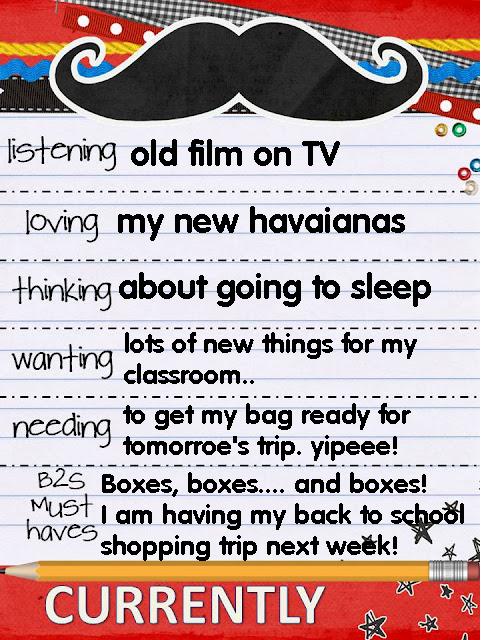 listening old film on TV
loving my new havaianas
thinking about going to sleep
wanting lots of new things for my
classroom..
needing to get my bag ready for
tomorroe's trip. yipeee!
B2S Must haves Boxes, boxes.... and boxes!
I am having my back to school
shopping trip next week!
CURRENTLY